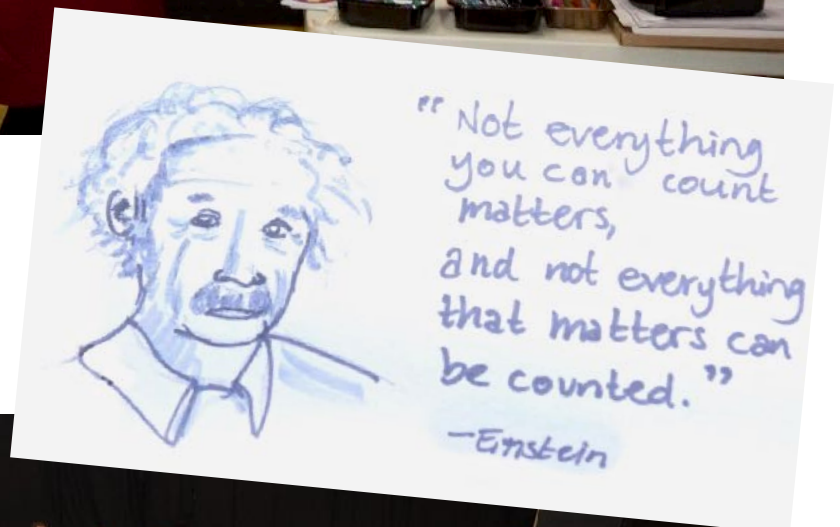 "Not everything
you can count
matters,
and not everything
that matters can
be counted."
—Einstein